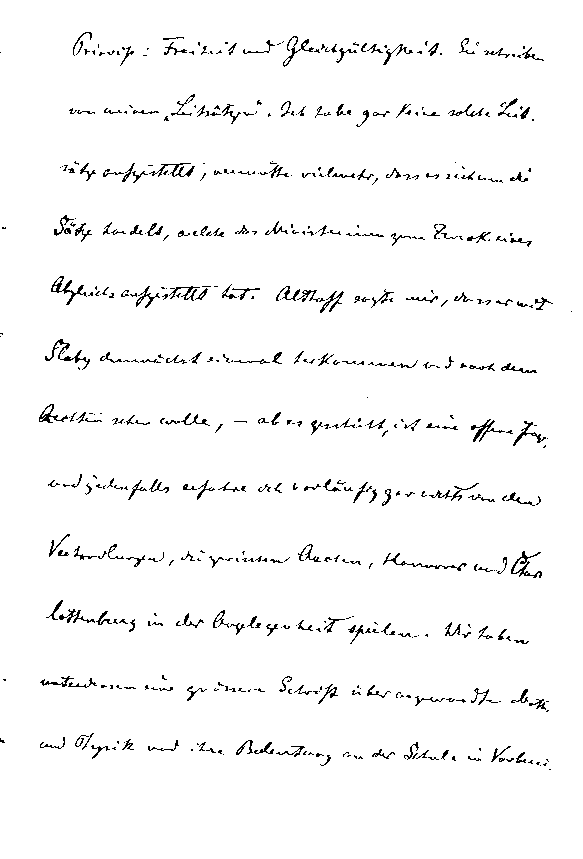 Princip: Freiheit und Gleichgültigkeit. Sie schreiben
von meinen „Leitsätzen“. Ich habe gar keine solche Leit-
sätze aufgestellt, vermuthe vielmehr, dass es sich um die
Sätze handelt, welche das Ministerium zum Zweck eines
Abgleichs aufgestellt hat. Althoff sagte mir, dass er mit
Slaby demnächst einmal herkommen und nach dem
Rechten sehen wolle, – ob es geschieht, ist eine offene Frage,
und jedenfalls erfahre ich vorläufig gar nichts von den
Verhandlungen, die zwischen Aachen, Hannover und Char-
lottenburg in der Angelegenheit spielen. Wir haben
unterdessen eine grössere Schrift über angewandte Math.
und Physik und ihre Bedeutung an der Schule in Vorberei-